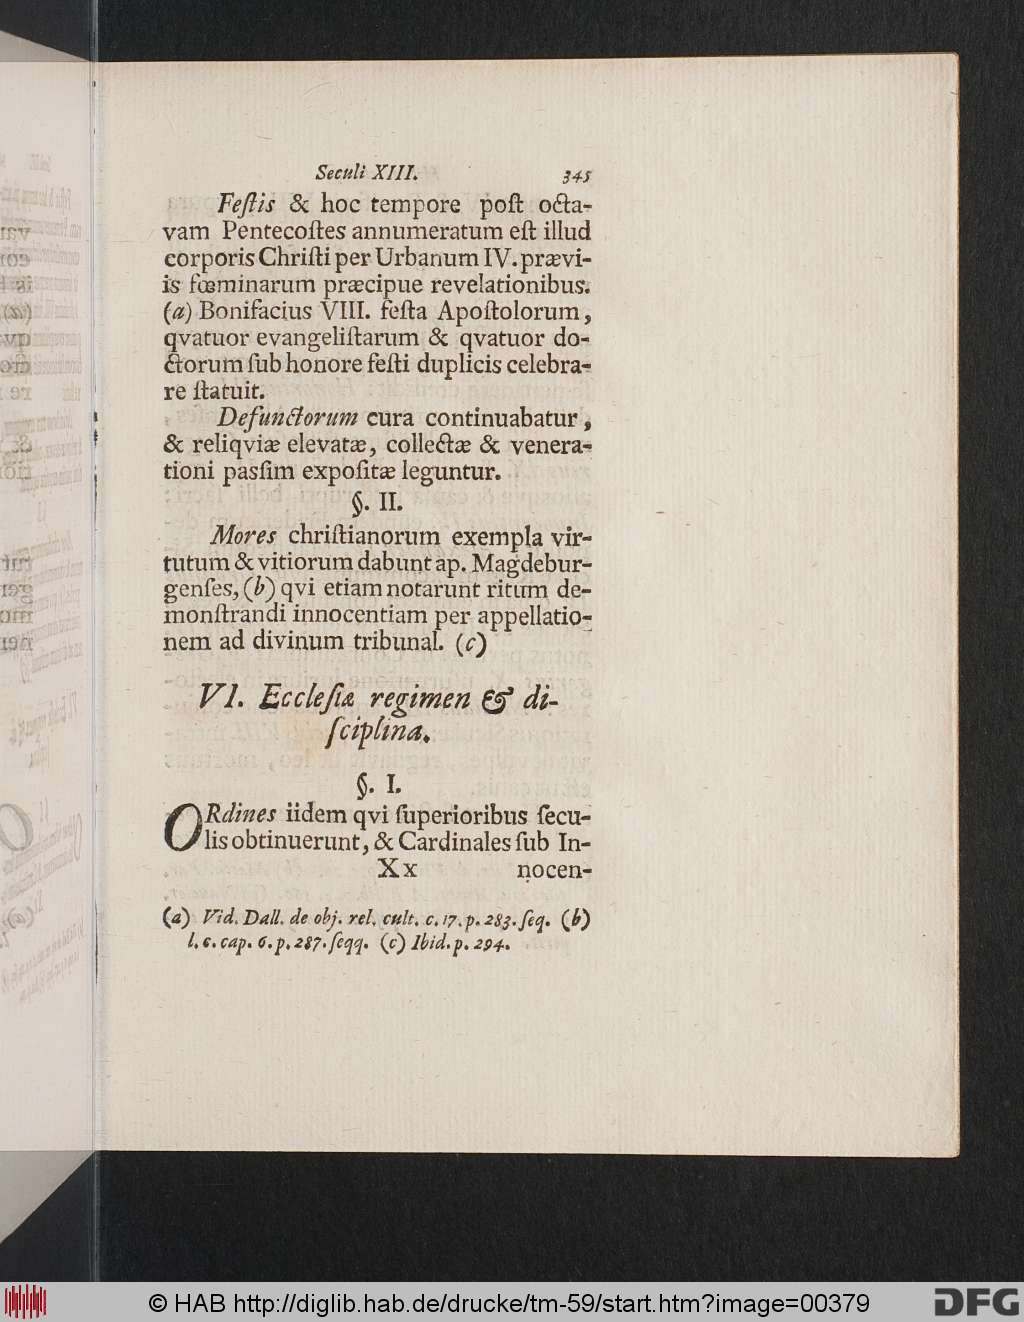 Seculi XIII. 345
Feſtis & hoc tempore poſt octa-
vam Pentecoſtes annumeratum eſt illud
corporis Chriſti per Urbanum IV. prævi-
is fœminarum præcipue revelationibus.
(a) Bonifacius VIII. feſta Apoſtolorum,
qvatuor evangeliſtarum & qvatuor do-
ctorum ſub honore feſti duplicis celebra-
re ſtatuit.
Defunctorum cura continuabatur,
& reliqviæ elevatæ, collectæ & venera-
tioni paſſim expoſitæ leguntur.
§. II.
Mores chriſtianorum exempla vir-
tutum & vitiorum dabunt ap. Magdebur-
genſes, (b) qvi etiam notarunt ritum de-
monſtrandi innocentiam per appellatio-
nem ad divinum tribunal. (c)
VI. Eccleſiæ regimen & di-
ſciplina.
§. I.
ORdines iidem qvi ſuperioribus ſecu-
lis obtinuerunt, & Cardinales ſub In-
Xx nocen-
(a) Vid. Dall. de obj. rel. cult. c. 17. p. 283. ſeq. (b)
l. c. cap. 6. p. 287. ſeqq. (c) Ibid. p. 294.
© HAB http://diglib.hab.de/drucke/tm-59/start.htm?image=00379
DFG